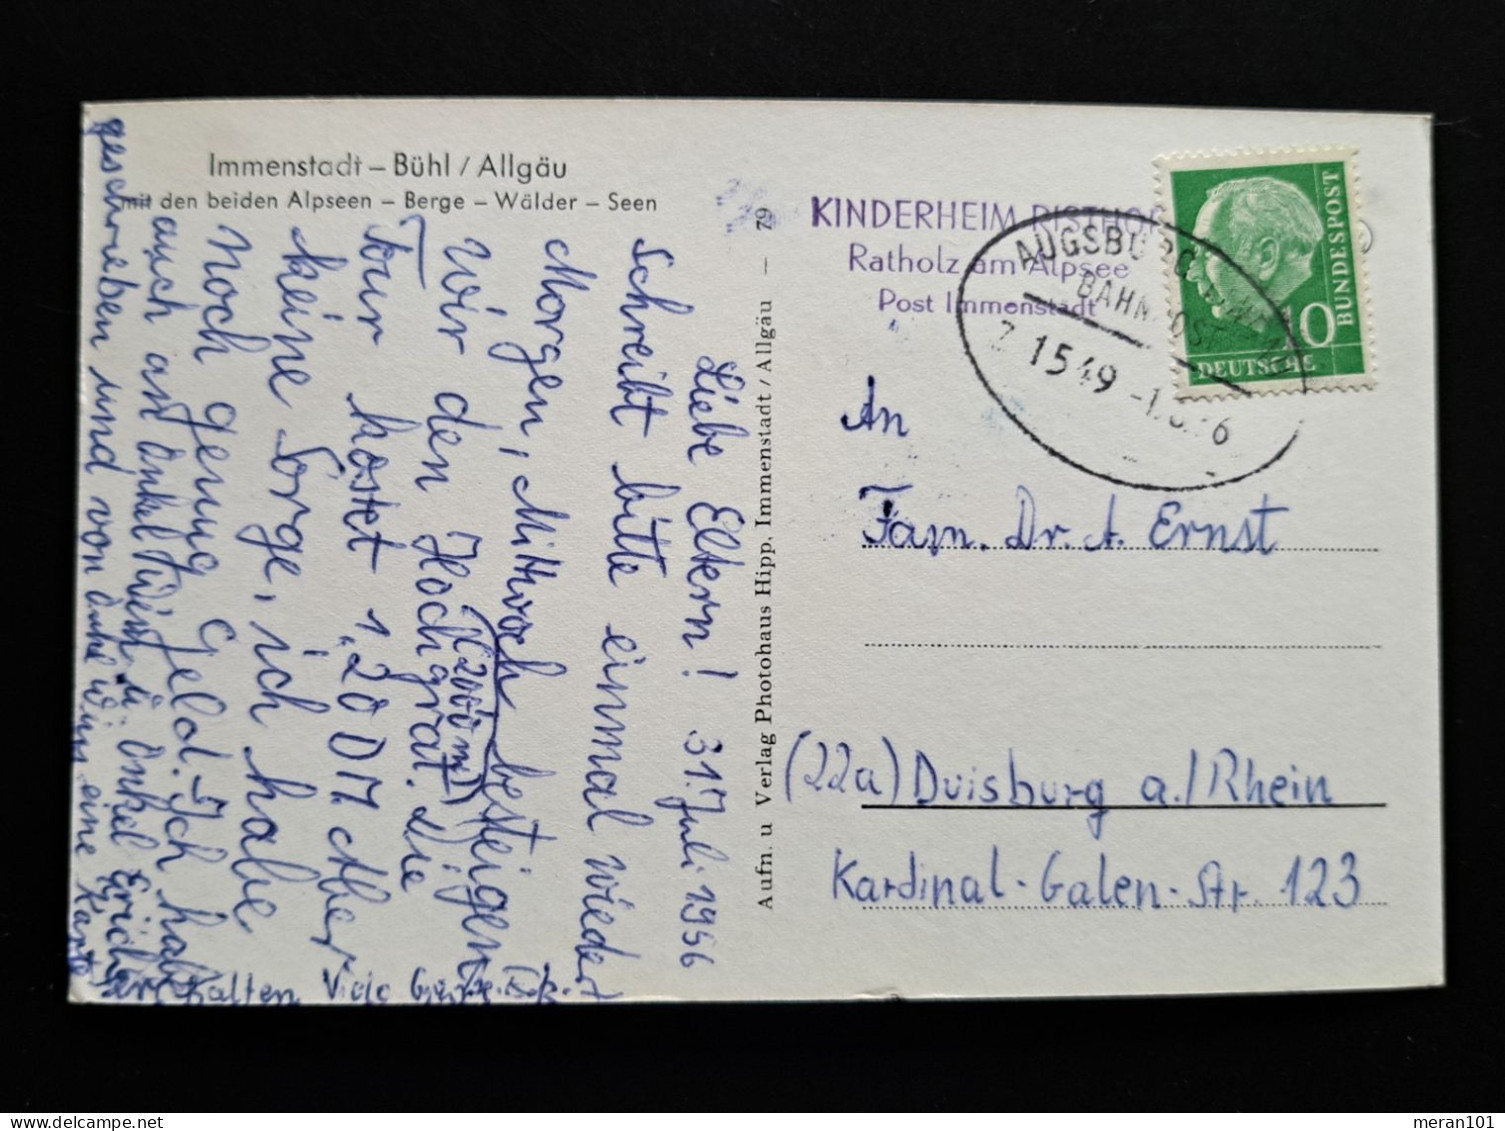 Immenstadt – Bühl / Allgäu
mit den beiden Alpseen – Berge – Wälder – Seen
Liebe Eltern! 31. Juli 1956
Schreibt bitte einmal wieder
Morgen, Mittwoch besteigen
wir den Hochgrat. Die
(2000 m)
Tour kostet 1,20 DM Aber
keine Sorge, ich habe
noch genug Geld. Ich habe
auch an Onkel Wim u. Onkel Erich
geschrieben und von Onkel Wim eine Karte
erhalten Viele
Aufn. u Verlag Photohaus Hipp, Immenstadt / Allgäu — 79
KINDERHEIM
Ratholz am Alpsee
Post Immenstadt
AUGSBURG
BAHNPOST
Z 1549
DEUTSCHE
BUNDESPOST
10
An
Fam. Dr. A. Ernst
(22a) Duisburg a./Rhein
Kardinal-Galen-Str. 123
meran101